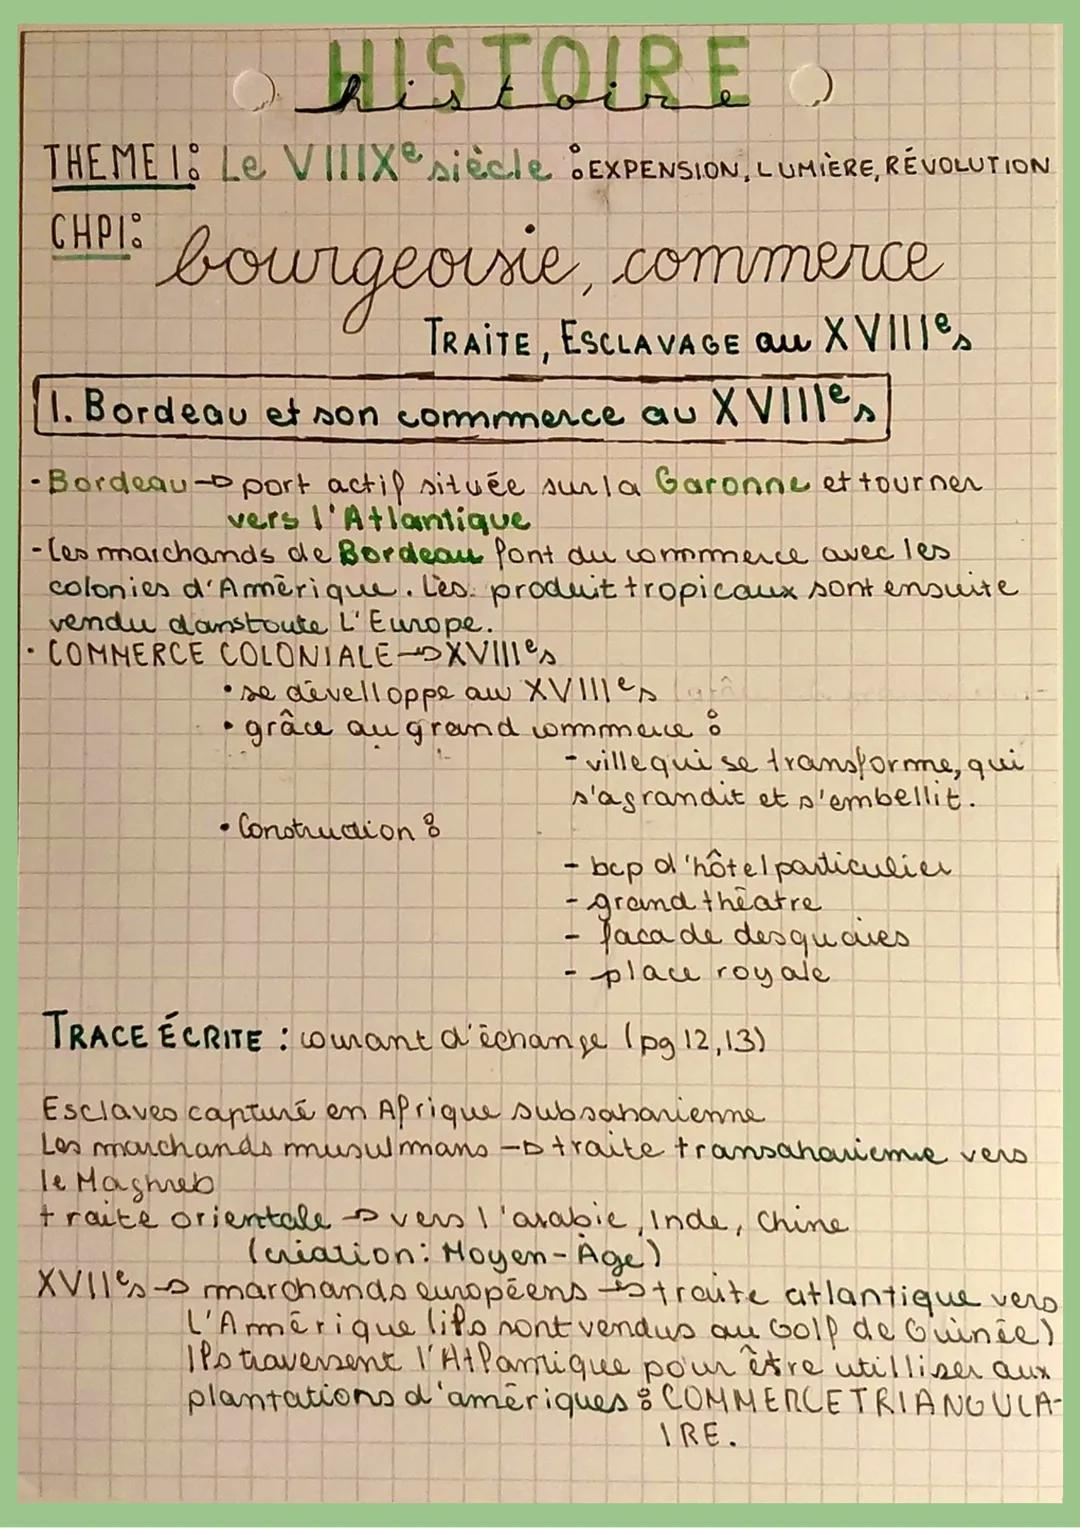 HISTOIRE
histoire
THEME 1: Le VIIIXe siècle : EXPENSION, LUMIÈRE, RÉVOLUTION
CHP1:
bourgeoisie, commerce
TRAITE, ESCLAVAGE au XVIIIe s
1. Bordeau et son commmerce au XVIIIe s
• Bordeau → port actif située sur la Garonne et tourner
vers l'Atlantique
- les marchands de Bordeau font du commmerce avec les
colonies d'Amérique. Les produit tropicaux sont ensuite
vendu dans toute L'Europe.
• COMMERCE COLONIALE → XVIIIe s
• se dévelloppe au XVIIIe s
• grâce au grand commmerce :
- ville qui se transforme, qui
s'agrandit et s'embellit.
• Construction :
- bcp d'hôtel particulier
- grand théatre
- facade des quaies
- place royale
TRACE ÉCRITE : courant d'échange (pg 12,13)
Esclaves capturé en Afrique subsaharienne
Les marchands musulmans → traite transaharienne vers
le Maghreb
traite orientale → vers l'arabie, Inde, Chine
(création: Moyen-Âge)
XVIIe s → marchands européens → traite atlantique vers
L'Amérique (ils sont vendus au Golf de Guinée)
Ils traversent l'Atlantique pour être utilliser aux
plantations d'amériques : COMMERCE TRIANGULA-
IRE.